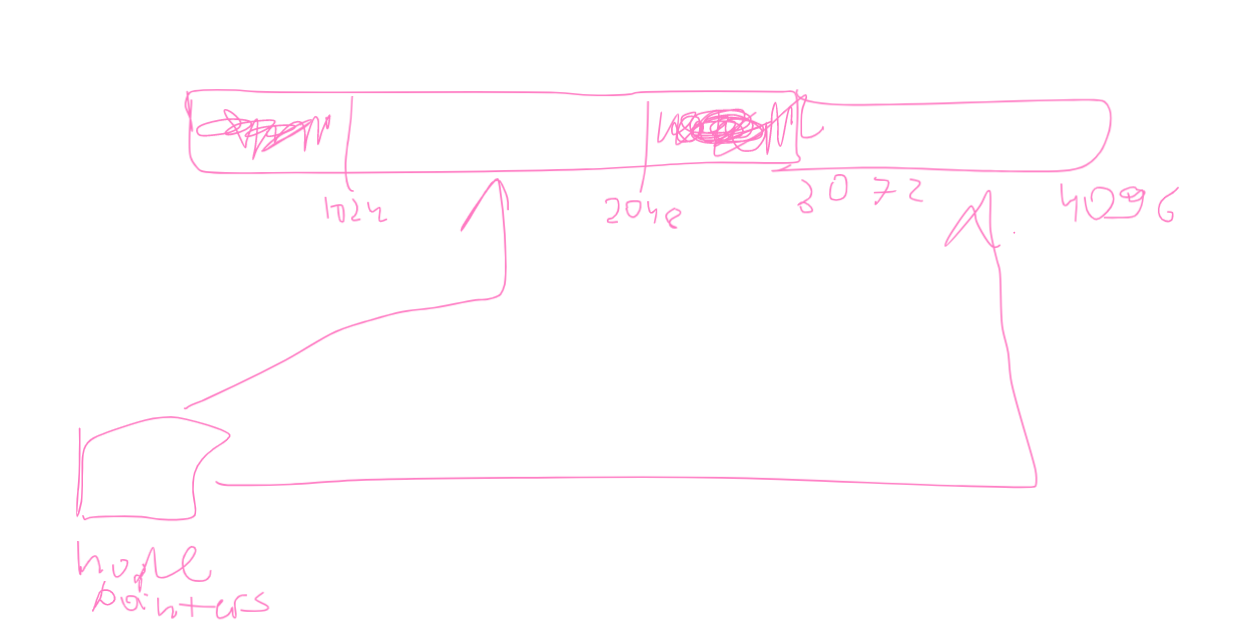 1024 2048 3072 4096
hole
pointers